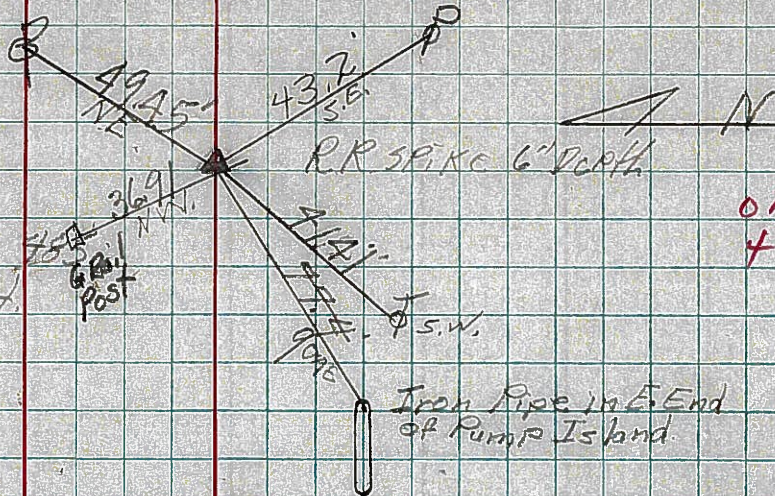 P
49.45'
NE
43.2'
S.E.
N
R.R. SPIKE 6" Depth
36.91
N.W.
G. Rail
Post
41.41'
T
S.W.
77.4'
GONE
Iron Pipe in E. End
of Pump Island.